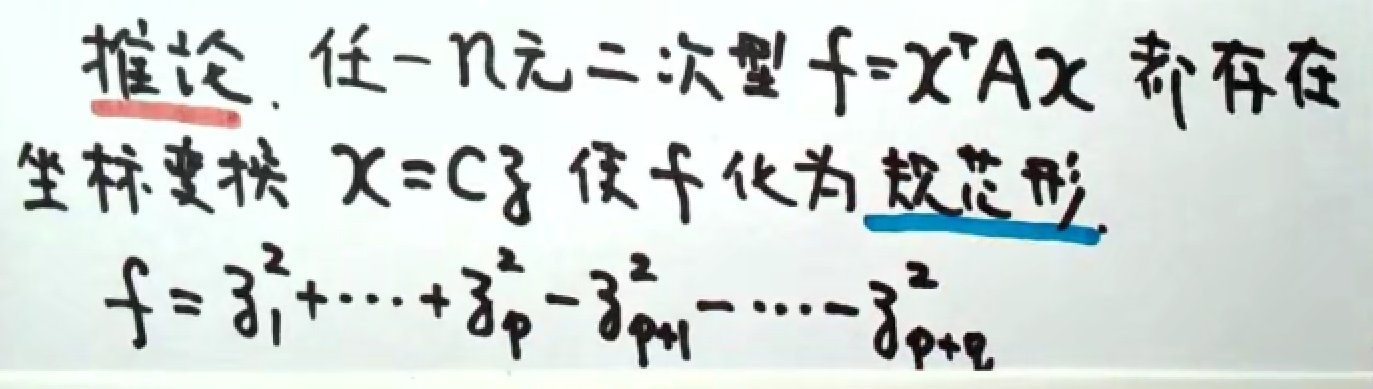 推论. 任一n元二次型 f=xᵀAx 都存在
坐标变换 x=Cz 使f化为规范形.
f=z₁²+⋯+zₚ²-zₚ₊₁²-⋯-z_{p+q}²